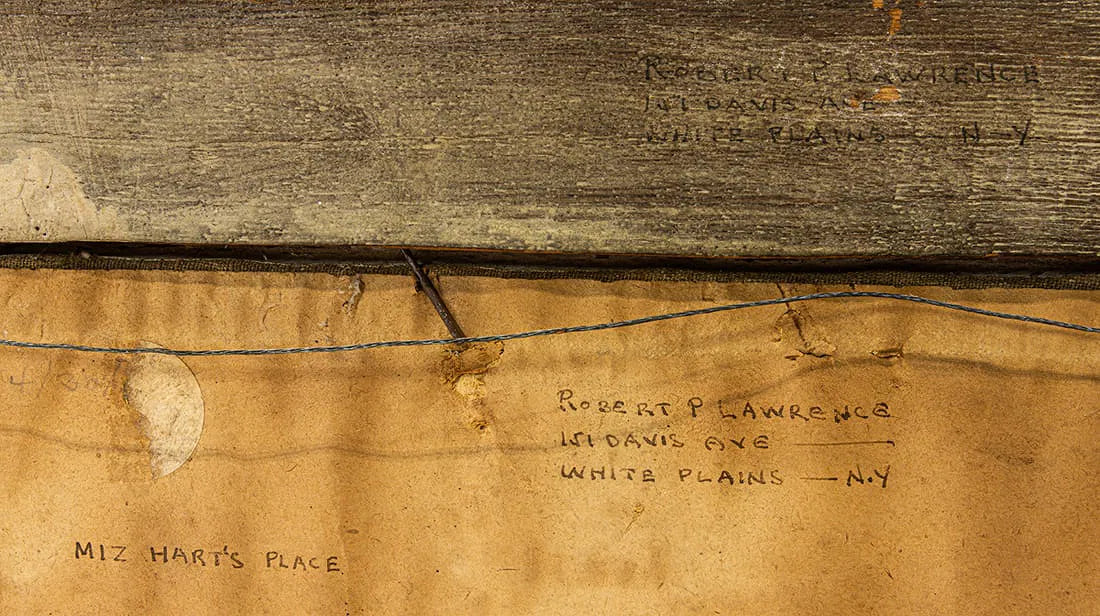 ROBERT P LAWRENCE
151 DAVIS AVE
WHITE PLAINS — N-Y
ROBERT P LAWRENCE
151 DAVIS AVE —
WHITE PLAINS — N.Y
MIZ HART'S PLACE